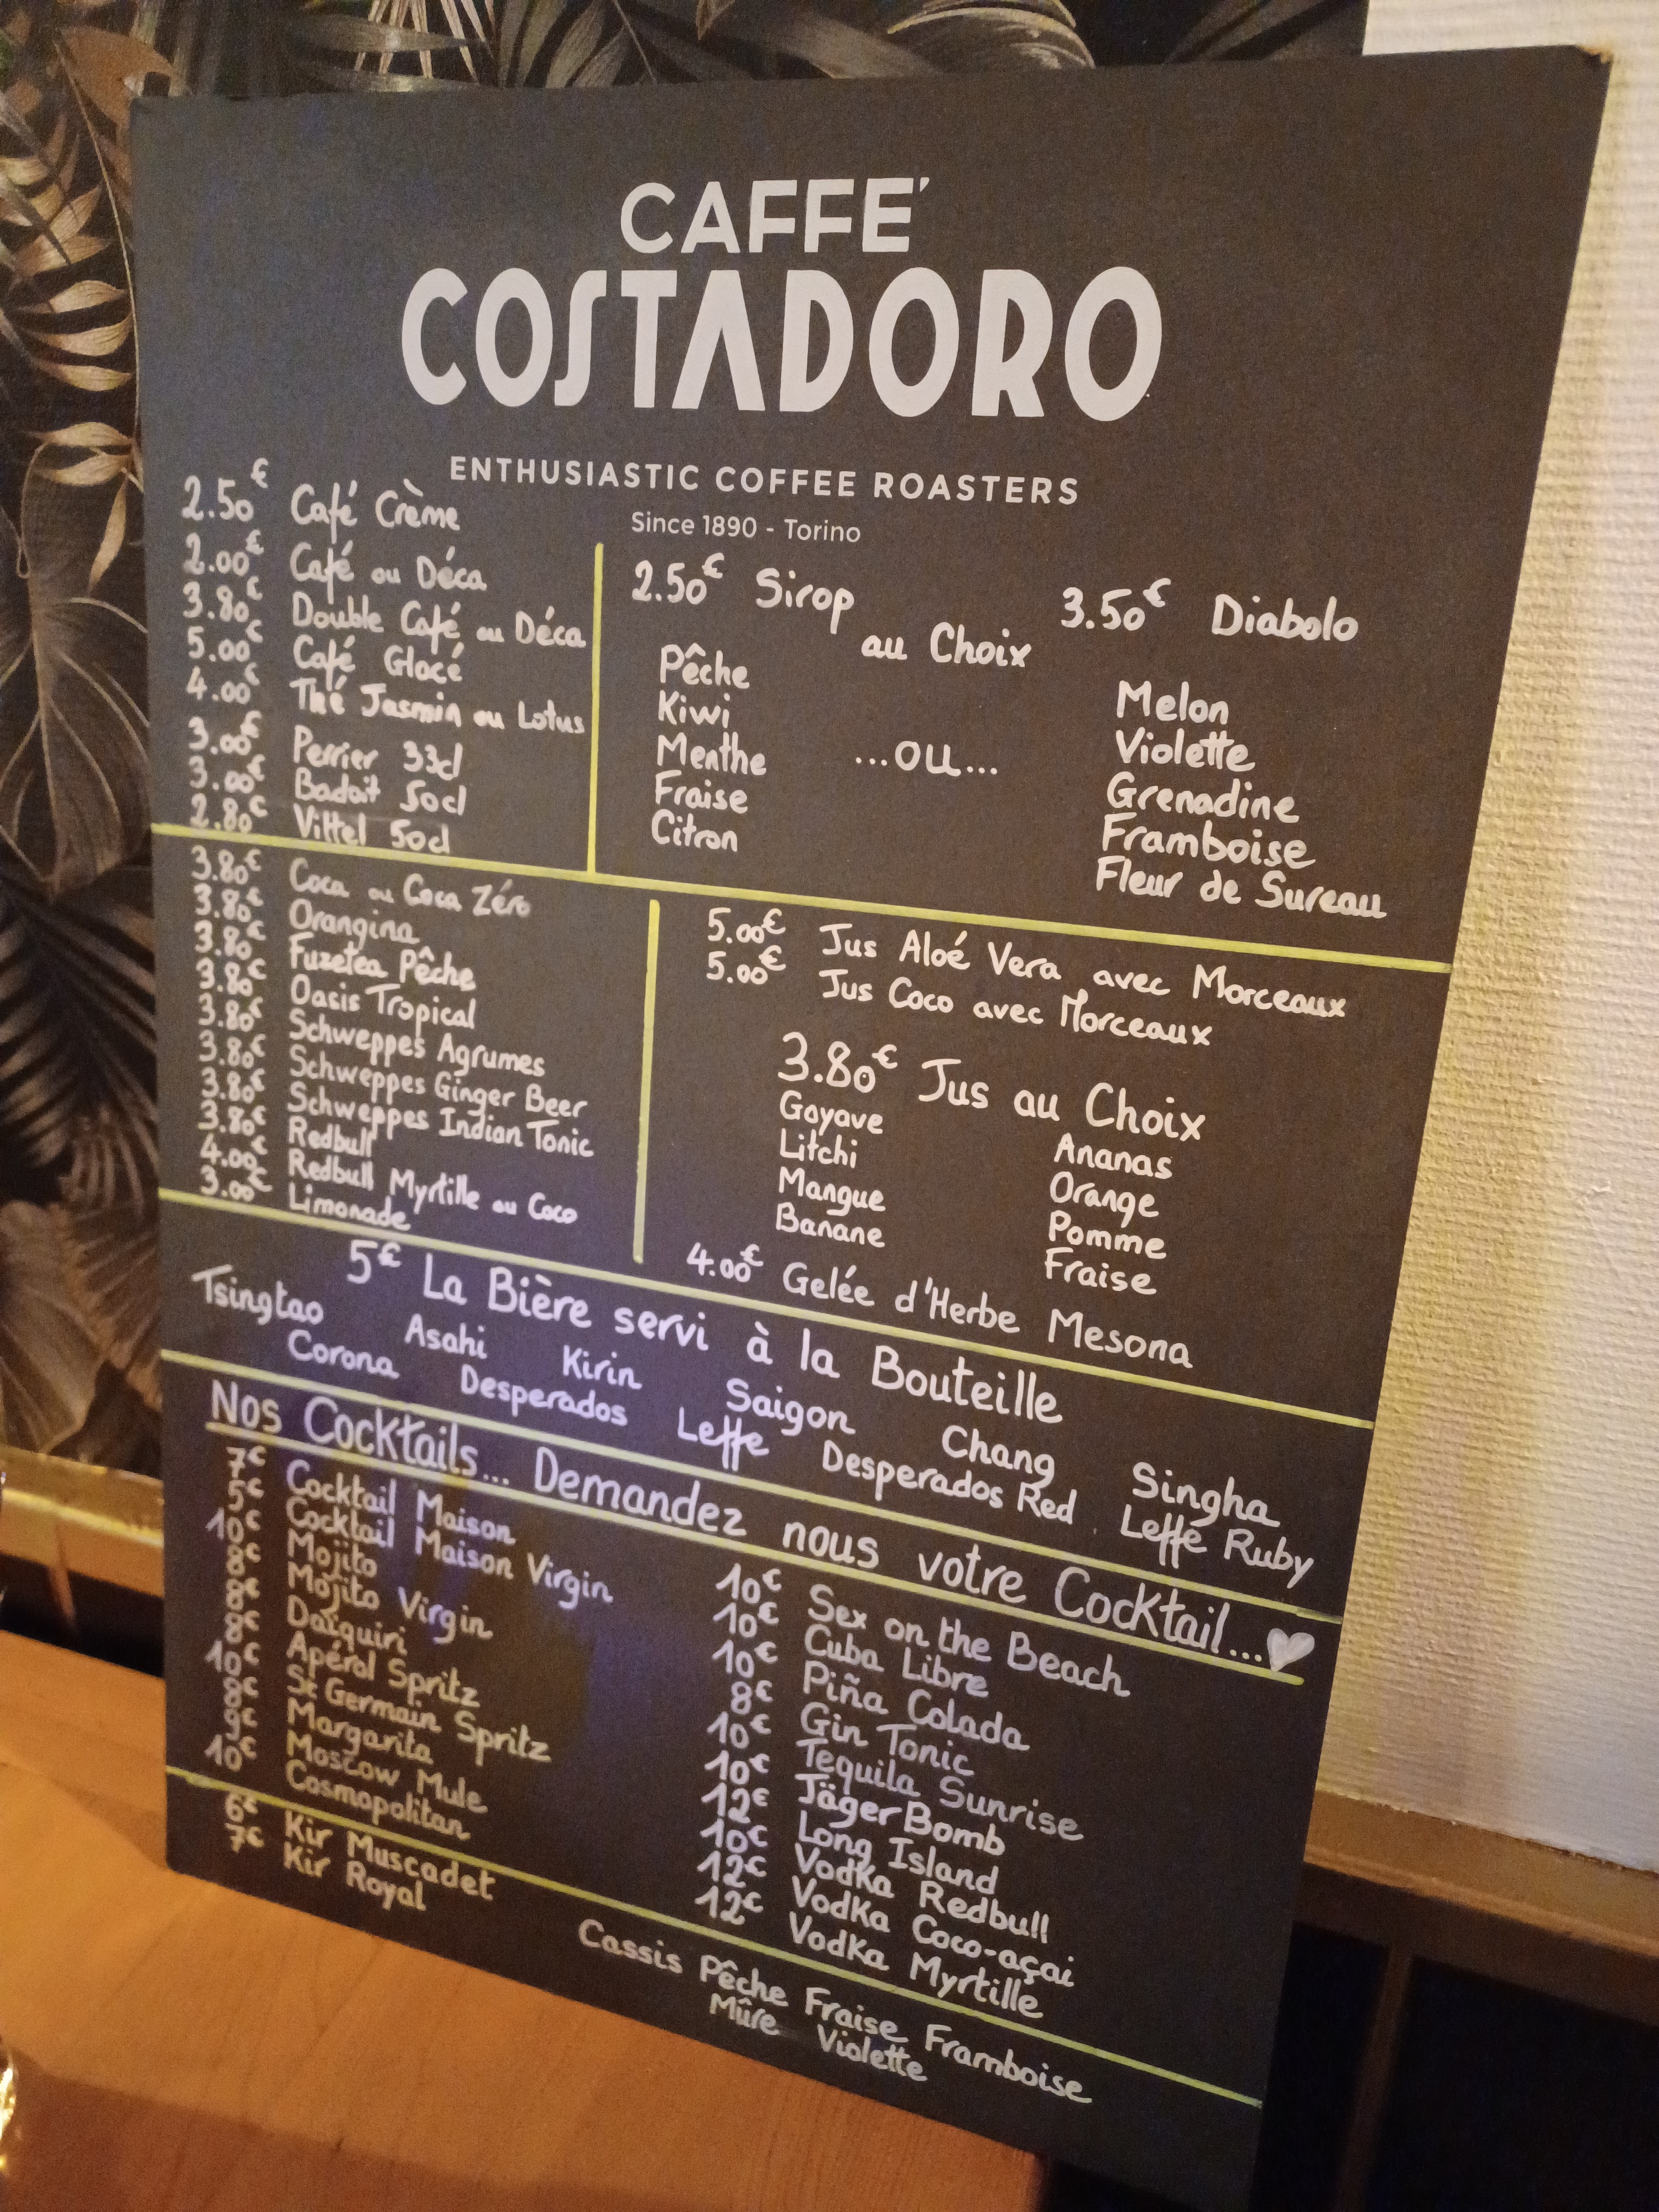 CAFFE'
COSTADORO
ENTHUSIASTIC COFFEE ROASTERS
Since 1890 - Torino
2.50€ Café Crème
2.00€ Café ou Déca
3.80€ Double Café ou Déca
5.00€ Café Glacé
4.00€ Thé Jasmin ou Lotus
3.00€ Perrier 33cl
3.00€ Badoit 50cl
2.80€ Vittel 50cl
2.50€ Sirop
au Choix
3.50€ Diabolo
Pêche
Kiwi
Menthe
Fraise
Citron
...ou...
Melon
Violette
Grenadine
Framboise
Fleur de Sureau
3.80€ Coca ou Coca Zéro
3.80€ Orangina
3.80€ Fuzetea Pêche
3.80€ Oasis Tropical
3.80€ Schweppes Agrumes
3.80€ Schweppes Ginger Beer
3.80€ Schweppes Indian Tonic
3.80€ Redbull
4.00€ Redbull Myrtille ou Coco
3.00€ Limonade
5.00€ Jus Aloé Vera avec Morceaux
5.00€ Jus Coco avec Morceaux
3.80€ Jus au Choix
Goyave
Litchi
Mangue
Banane
Ananas
Orange
Pomme
Fraise
4.00€ Gelée d'Herbe Mesona
5€ La Bière servi à la Bouteille
Tsingtao Asahi Kirin Saigon Chang Singha
Corona Desperados Leffe Desperados Red Leffe Ruby
Nos Cocktails... Demandez nous votre Cocktail...♥
7€ Cocktail Maison
5€ Cocktail Maison Virgin
10€ Mojito
8€ Mojito Virgin
8€ Daïquiri
8€ Apérol Spritz
10€ St Germain Spritz
8€ Margarita
9€ Moscow Mule
10€ Cosmopolitan
10€ Sex on the Beach
10€ Cuba Libre
10€ Piña Colada
8€ Gin Tonic
10€ Tequila Sunrise
10€ JägerBomb
12€ Long Island
10€ Vodka Redbull
12€ Vodka Coco-açai
12€ Vodka Myrtille
6€ Kir Muscadet
7€ Kir Royal
Cassis Pêche Fraise Framboise
Mûre Violette